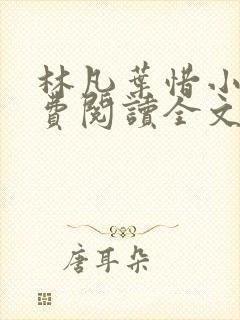 林凡葉惜小
費閱讀全文
唐耳朵